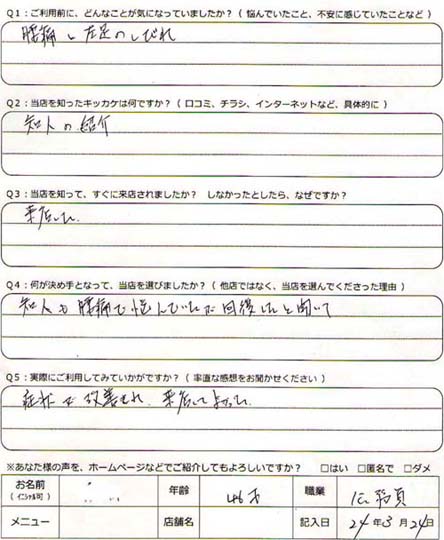 Q1：ご利用前に、どんなことが気になっていましたか？（ 悩んでいたこと、不安に感じていたことなど ）
腰痛と左足のしびれ
Q2：当店を知ったキッカケは何ですか？（ 口コミ、チラシ、インターネットなど、具体的に ）
知人の紹介
Q3：当店を知って、すぐに来店されましたか？ しなかったとしたら、なぜですか？
来店した.
Q4：何が決め手となって、当店を選びましたか？（ 他店ではなく、当店を選んでくださった理由 ）
知人も腰痛で悩んでいたが回復したと聞いて
Q5：実際にご利用してみていかがですか？（ 率直な感想をお聞かせください ）
症状が改善され、来店してよかった.
※あなた様の声を、ホームページなどでご紹介してもよろしいですか？ □はい □匿名で □ダメ
お名前 年齢 46才 職業
（イニシャル可）
メニュー 店舗名 記入日 24年3月24日